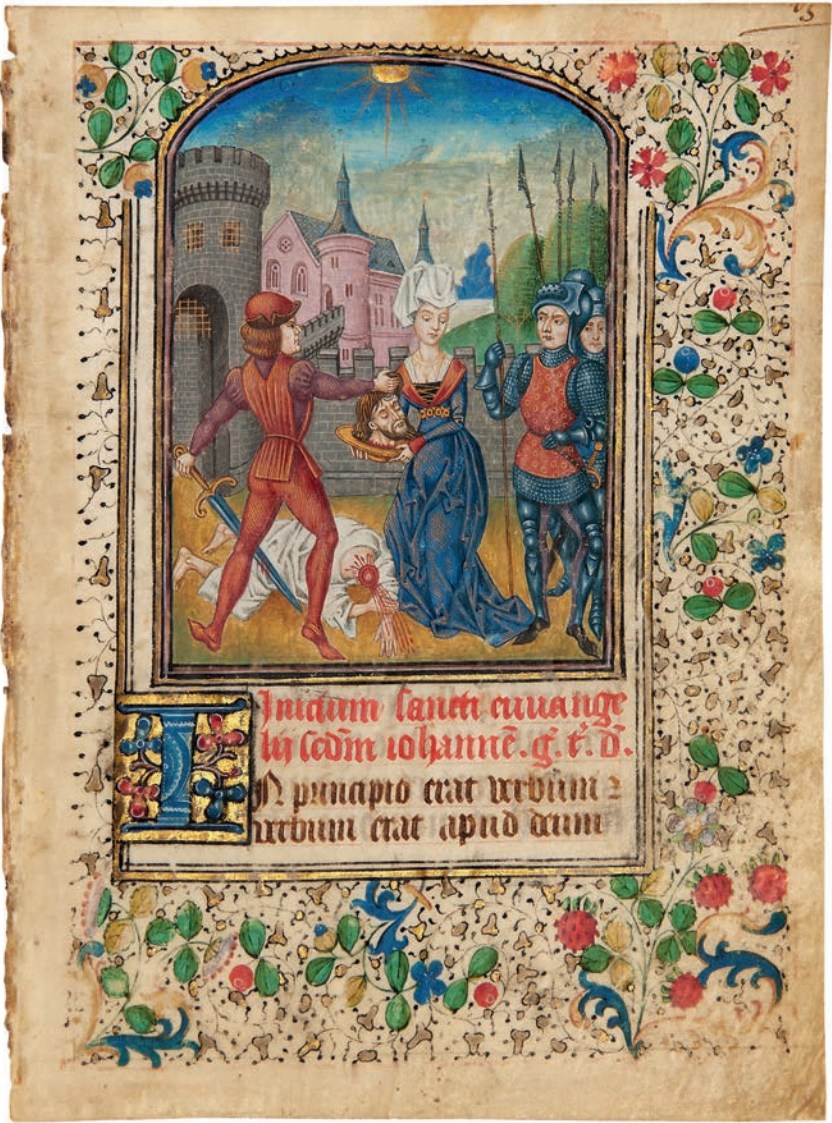 Inicium sancti euuange
lij scd̄m iohannē . g . t̄ . d̄ .
IN principio erat verbum ⁊
verbum erat apud deum